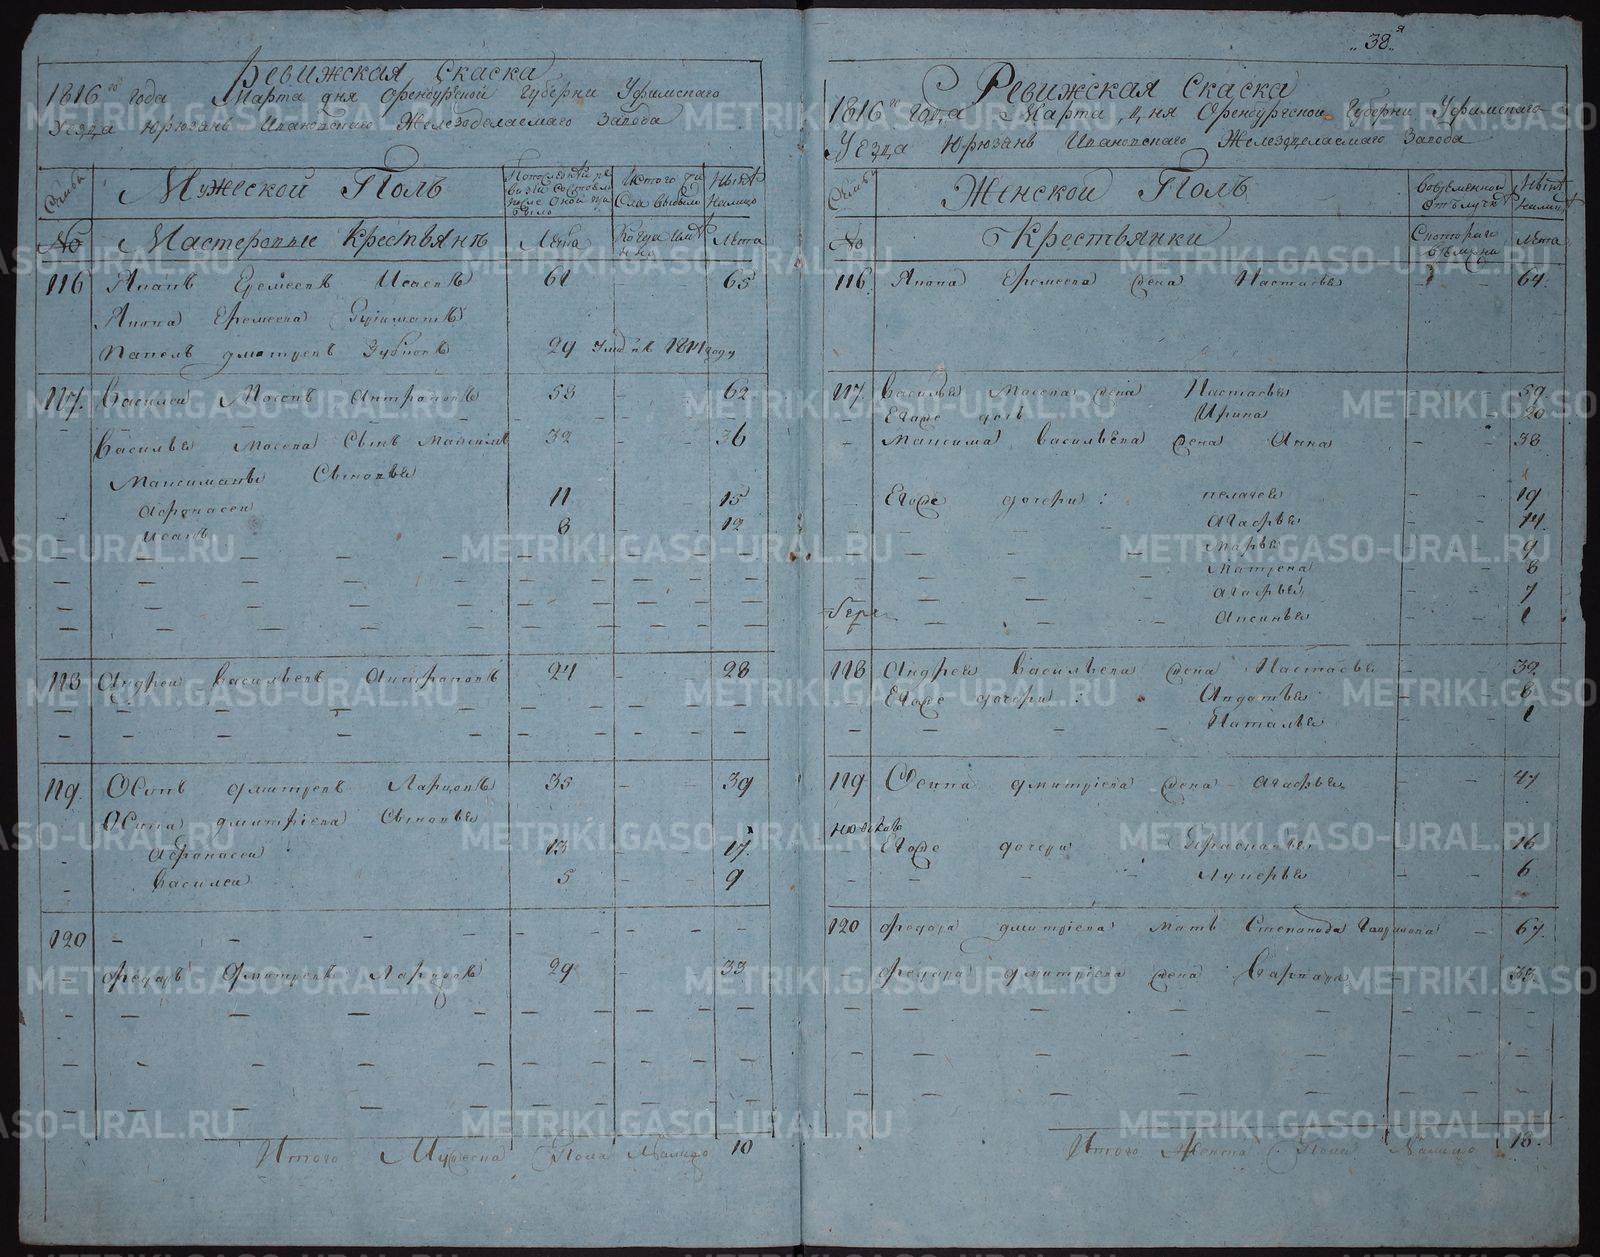 Ревижская Скаска
1816го года Марта дня Оренбурской Губерни Уфимскаго
Уезда Юрюзань Ивановскаго Железоделаемаго Завода
Семьи
Мужеской Полъ
Ныне Налицо
No
Мастеровые Крестьянѣ
Лета
Когда имянно
Лета
116 Иванъ Еремеевъ Исаевъ 61 - 65
Ивана Еремеева
Павелъ дмитревъ Зубковъ 29 в 1811 году
117. Василеи Мосевъ Антроповъ 58 - 62
Василья Мосева Сынъ Максимъ 32 - 36
Максимовы Сыновья
Афонасеи 11 - 15
Исаакъ 8 - 12
118 Андреи Васильевъ Антроповъ 24 - 28
119. Осипъ дмитревъ Ларцовъ 35 - 39
Осипа дмитріева Сыновья
Афонасеи 13 - 17.
Василеи 5 - 9
120
Федоръ дмитревъ Ларцовъ 29 - 33
Итого Мужеска Пола Налицо 10
38
Ревижская Скаска
1816го года Марта дня Оренбурской Губерни Уфимскаго
Уезда Юрюзань Ивановскаго Железоделаемаго Завода
Семьи
Женской Полъ
Во временной отълучке
Ныне Налицо
No
Крестьянки
Лета
116. Ивана Еремеева жена Настасья - - 64.
117. Василья Мосева жена Настасья 59.
Егоже дочь Ирина 20
Максима Васильева жена Анна 38
Егоже дочери: пелагея 19
Агафья 14.
Марья 9
Матрена 8
Агафья 7
Аксинья 1
118 Андрея Васильева жена Настасья 32
Егоже дочери: 8
Наталья 1
119 Осипа дмитріева жена Агафья 47
Егоже дочери Прасковья 16
Лукерья 6
120 Федора дмитріева мать Степанида Гаврилова - 67.
Федора дмитріева жена Варвара 33.
Итого Женска Пола Налицо 18.
METRIKI.GASO-URAL.RU